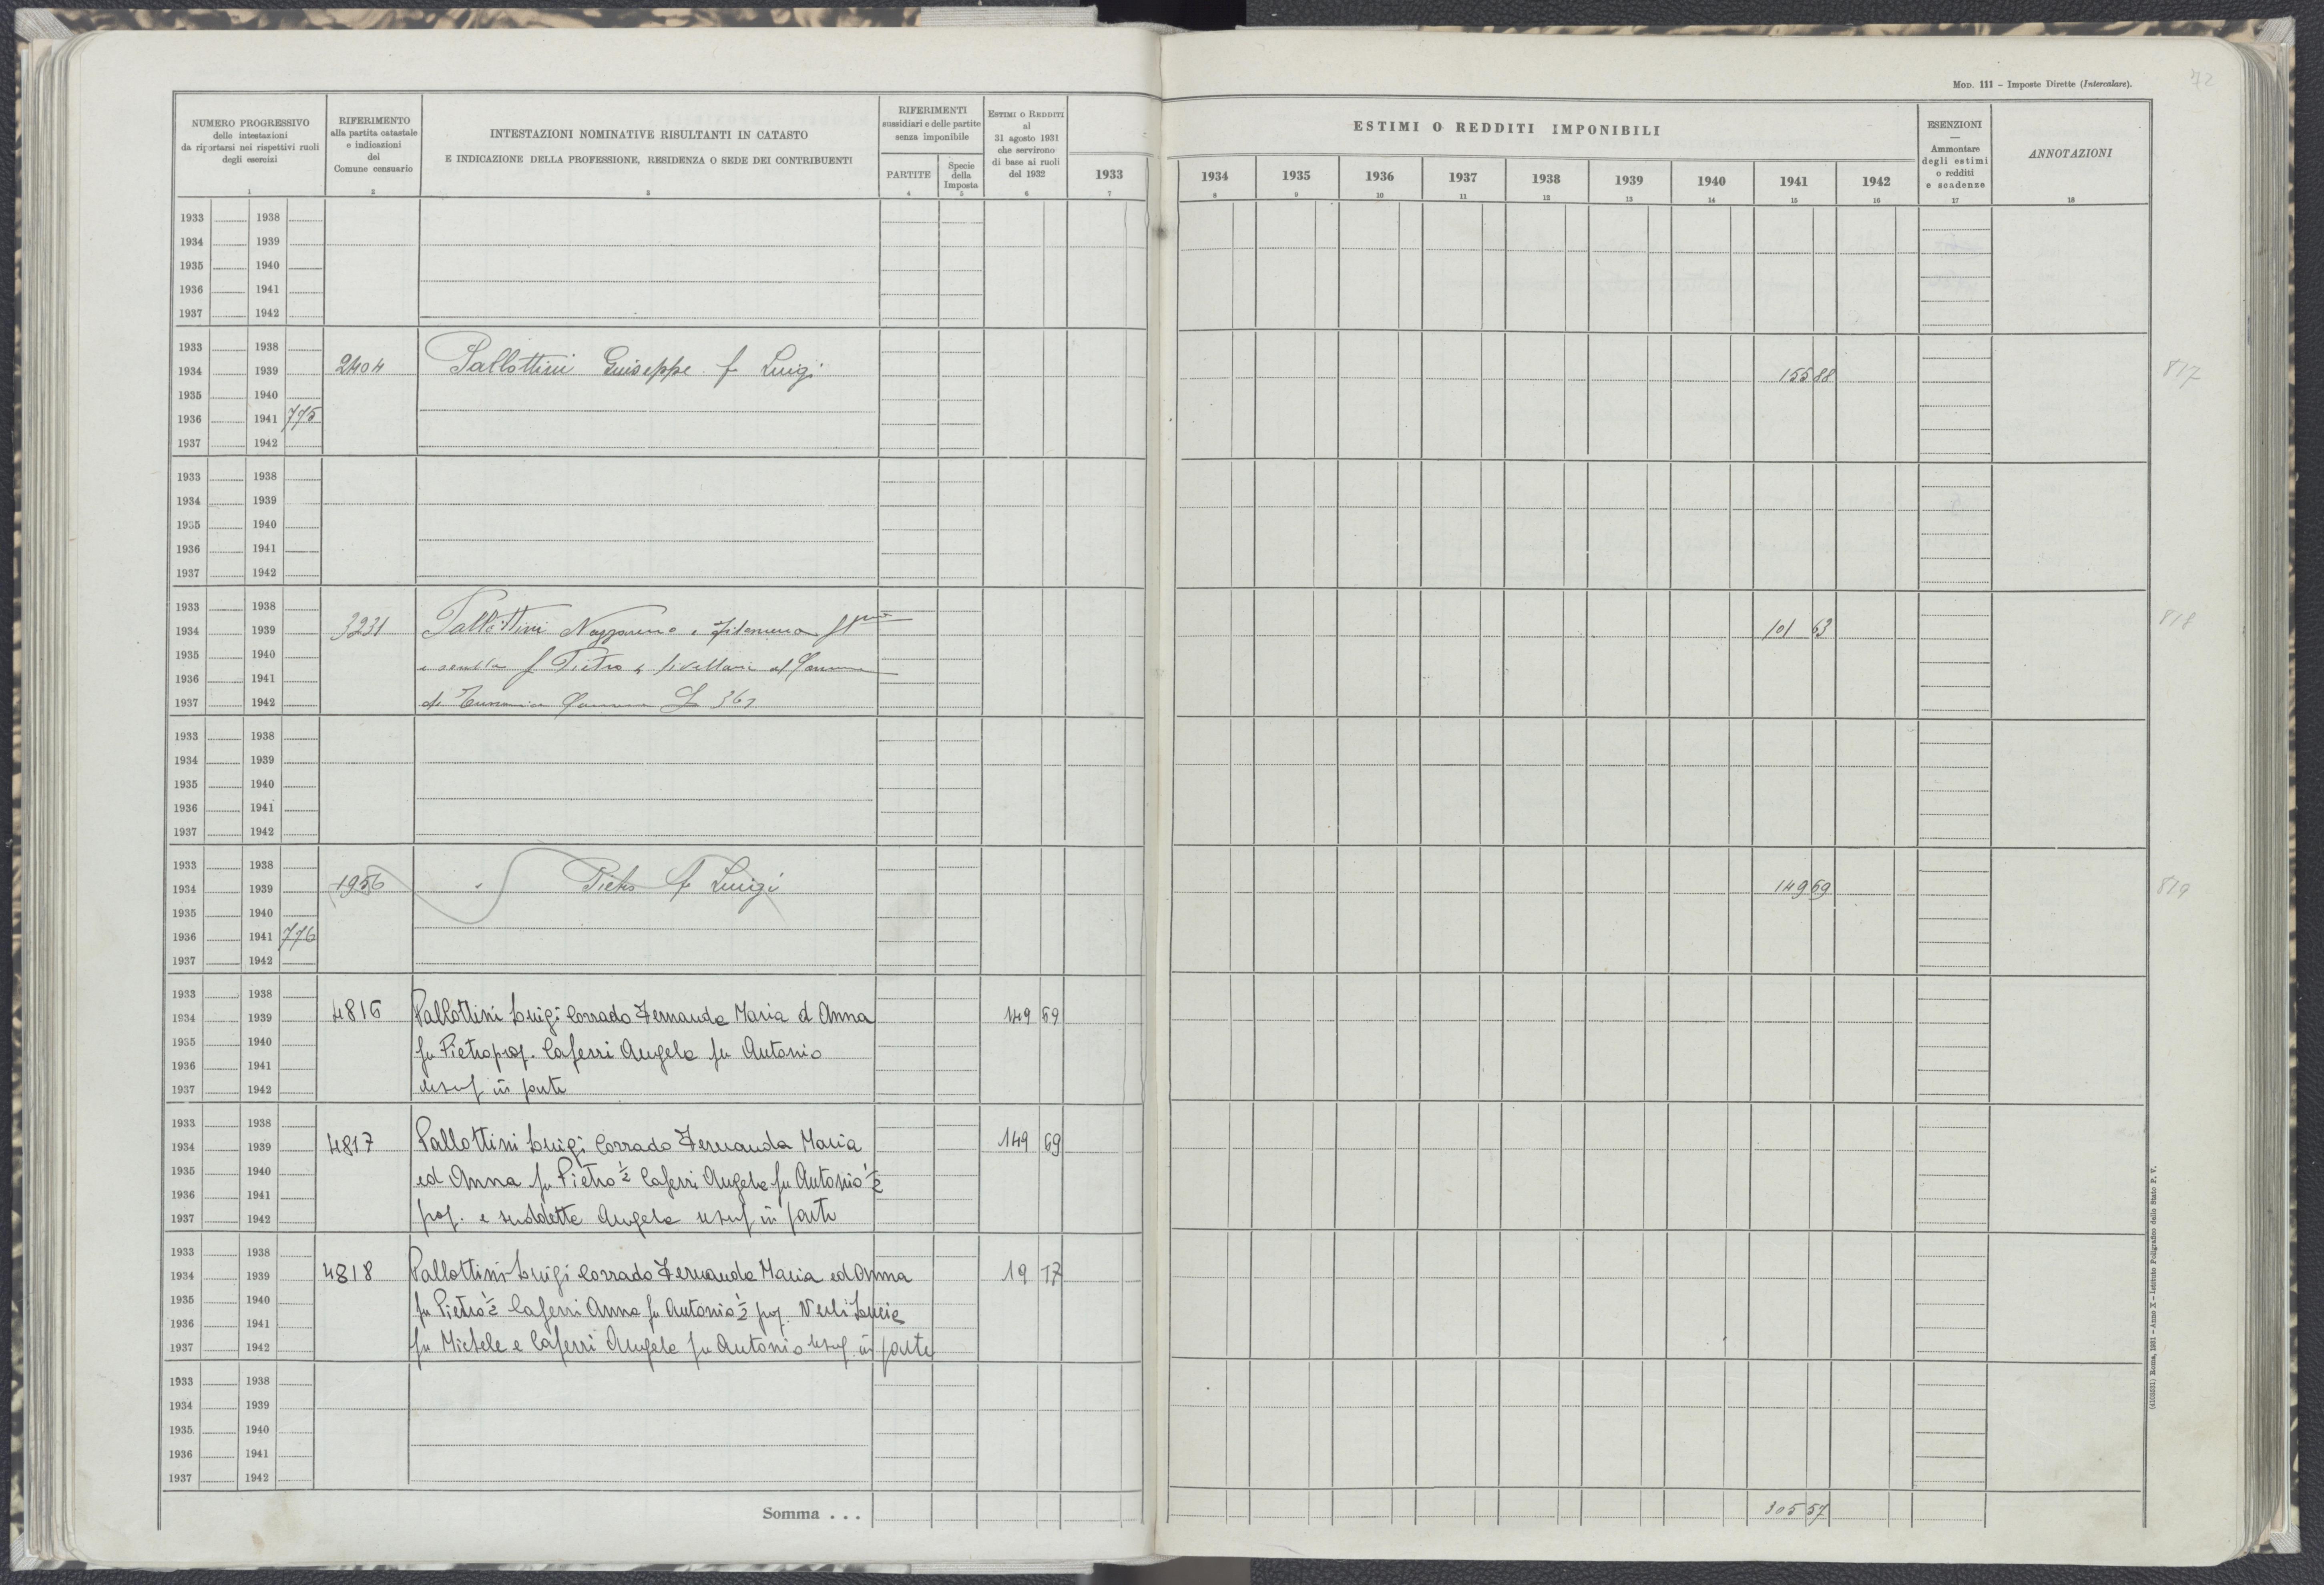 MOD. 111 – Imposte Dirette (Intercalare).
72
NUMERO PROGRESSIVO
delle intestazioni
da riportarsi nei rispettivi ruoli
degli esercizi
1
RIFERIMENTO
alla partita catastale
e indicazioni
del
Comune censuario
2
INTESTAZIONI NOMINATIVE RISULTANTI IN CATASTO
E INDICAZIONE DELLA PROFESSIONE, RESIDENZA O SEDE DEI CONTRIBUENTI
3
RIFERIMENTI
sussidiari e delle partite
senza imponibile
PARTITE
4
Specie
della
Imposta
5
ESTIMI O REDDITI
al
31 agosto 1931
che servirono
di base ai ruoli
del 1932
6
1933
7
ESTIMI O REDDITI IMPONIBILI
1934 1935 1936 1937 1938 1939 1940 1941 1942
8 9 10 11 12 13 14 15 16
ESENZIONI
—
Ammontare
degli estimi
o redditi
e scadenze
17
ANNOTAZIONI
18
1933 1938
1934 1939
1935 1940
1936 1941
1937 1942
1933 1938
1934 1939 2404 Pallottini Giuseppe f Luigi 155 88 817
1935 1940
1936 1941 775
1937 1942
1933 1938
1934 1939
1935 1940
1936 1941
1937 1942
1933 1938
1934 1939 3231 Pallottini Nazzareno e Filomena 101 63 818
1935 1940 f Pietro livellari al
1936 1941
1937 1942 di L 367
1933 1938
1934 1939
1935 1940
1936 1941
1937 1942
1933 1938
1934 1939 1956 " Pietro f Luigi 149 69 819
1935 1940
1936 1941 776
1937 1942
1933 1938
1934 1939 4816 Pallottini Luigi Corrado Fernanda Maria ed Anna 149 69
1935 1940 fu Pietro prop. Caferri Angela fu Antonio
1936 1941
1937 1942 usuf in parte
1933 1938
1934 1939 4817 Pallottini Luigi Corrado Fernanda Maria 149 69
1935 1940 ed Anna fu Pietro ½ Caferri Angela fu Antonio ½
1936 1941
1937 1942 prop. e suddetta Angela usuf in parte
1933 1938
1934 1939 4818 Pallottini Luigi Corrado Fernanda Maria ed Anna 19 17
1935 1940 fu Pietro ½ Caferri Anna fu Antonio ½ prop. Lucia
1936 1941
1937 1942 fu Michele e Caferri Angela fu Antonio usuf. in parte
1933 1938
1934 1939
1935 1940
1936 1941
1937 1942
Somma . . . 305 57
(4105031) Roma, 1931 – Anno X – Istituto Poligrafico dello Stato P. V.